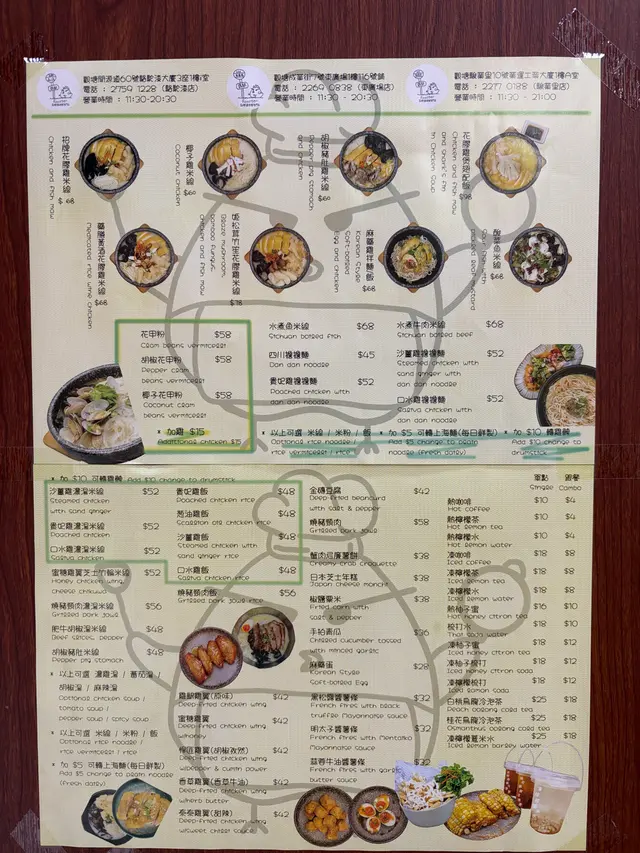 觀塘開源道60號駱駝漆大廈3座1樓K室
電話 : 2759 1228 (駱駝漆店)
營業時間 : 11:30-20:30
觀塘成業街7號東廣場1樓116號舖
電話 : 2269 0838 (東廣場店)
營業時間 : 11:30 - 20:30
觀塘駿業里10號業運工業大廈1樓A室
電話 : 2277 0188 (駿業里店)
營業時間 : 11:30 - 21:00
招牌花膠雞米線
Chicken and fish maw
$68
椰子雞米線
Coconut chicken
$60
胡椒豬肚雞米線
Pepper pig stomach
and chicken
$60
花膠雞煲翅配飯
Chicken and fish maw
and shark's fin
in Chicken Soup
$98
藥膳黃酒花膠雞米線
Medicated rice wine chicken
$68
姬松茸竹笙花膠雞米線
Blaze mushrooms
bamboo fungus
chicken and fish maw
$78
麻藥雞拌麵飯
Korean Style
Soft-boiled
Egg and chicken
$68
酸菜魚米線
Sliced fish with
pickled Beef mustard
$68
花甲粉 $58
Clam beans vermicelli
胡椒花甲粉 $58
Pepper clam
beans vermicelli
椰子花甲粉 $58
Coconut clam
beans vermicelli
* 加雞 $15
Additional chicken $15
水煮魚米線 $68
Sichuan boiled fish
四川擔擔麵 $45
Dan dan noodle
貴妃雞擔擔麵 $52
Poached chicken with
dan dan noodle
* 以上可選 米線 / 米粉 / 飯
Optional rice noodle /
rice vermicelli / rice
水煮牛肉米線 $68
Sichuan boiled beef
沙薑雞擔擔麵 $52
Steamed chicken with
sand ginger with
dan dan noodle
口水雞擔擔麵 $52
Saliva chicken with
dan dan noodle
* 加 $5 可轉上海麵(每日鮮製)
Add $5 change to plain
noodle (freshly made)
* 加 $10 轉雞髀
Add $10 change to
drumstick
* 加 $10 可轉雞髀 Add $10 change to drumstick
沙薑雞濃湯米線 $52
Steamed chicken
with sand ginger
貴妃雞濃湯米線 $52
Poached chicken
口水雞濃湯米線 $52
Saliva chicken
蜜糖雞翼芝士竹輪米線 $52
Honey chicken wing,
cheese chikuwa
燒豬頸肉濃湯米線 $56
Grilled pork jowl
肥牛胡椒湯米線 $48
Beef slices, pepper
胡椒豬肚米線 $48
Pepper pig stomach
* 以上可選 濃雞湯 / 蕃茄湯 /
胡椒湯 / 麻辣湯
Optional chicken soup /
tomato soup /
pepper soup / spicy soup
* 以上可選 米線 / 米粉 / 飯
Optional rice noodle /
rice vermicelli / rice
* 加 $5 可轉上海麵(每日鮮製)
Add $5 change to plain noodle
(freshly made)
貴妃雞飯 $48
Poached chicken rice
葱油雞飯 $48
Scallion oil chicken rice
沙薑雞飯 $48
Steamed chicken with
sand ginger rice
口水雞飯 $48
Saliva chicken rice
燒豬頸肉飯 $56
Grilled pork jowl rice
香脆雞翼(原味) $42
Deep-fried chicken wing
蜜糖雞翼 $42
Deep-fried chicken wing
w/honey
椒鹽雞翼(胡椒孜然) $42
Deep-fried chicken wing
w/pepper & cumin power
香草雞翼(香草牛油) $42
Deep-fried chicken wing
w/herb butter
泰泰雞翼(甜辣) $42
Deep-fried chicken wing
w/sweet chilli sauce
金磚豆腐 $42
Deep-fried beancurd
with salt & pepper
燒豬頸肉 $58
Grilled pork jowl
蟹肉忌廉薯餅 $38
Creamy crab croquette
日本芝士年糕 $38
Japan cheese monchi
椒鹽粟米 $38
Fried corn with
salt & pepper
手拍青瓜 $36
Chilled cucumber tossed
with minced garlic
麻藥蛋 $28
Korean Style
Soft-boiled Egg
黑松露醬薯條 $32
French fries with black
truffle Mayonnaise sauce
明太子醬薯條 $32
French fries with Mentaiko
Mayonnaise sauce
蒜蓉牛油醬薯條 $32
French fries with garlic
butter sauce
單點 跟餐
Single Combo
熱咖啡 $10 $4
Hot coffee
熱檸檬茶 $10 $4
Hot lemon tea
熱檸檬水 $10 $4
Hot lemon water
凍咖啡 $18 $8
Iced coffee
凍檸檬茶 $18 $8
Iced lemon tea
凍檸檬水 $18 $8
Iced lemon water
熱柚子蜜 $16 $10
Hot honey citron tea
梳打水 $18 $8
Thai soda water
凍柚子蜜 $18 $12
Iced honey citron tea
凍柚子梳打 $18 $12
Iced honey citron soda
凍檸檬梳打 $18 $12
Iced lemon soda
白桃烏龍冷泡茶 $25 $18
Peach oolong cold tea
桂花烏龍冷泡茶 $25 $18
Osmanthus oolong cold tea
凍檸檬薏米水 $25 $18
Iced lemon barley water